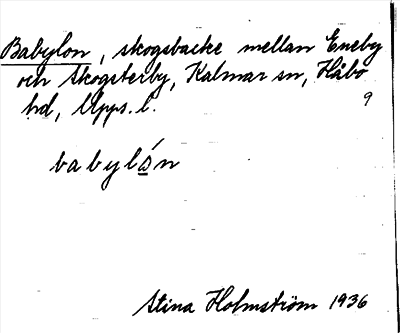 Babylon, skogsbacke mellan Eneby
och Skogsterby, Kalmar sn, Håbo
hd, Upps. l. 9
babylån
Stina Holmström 1936